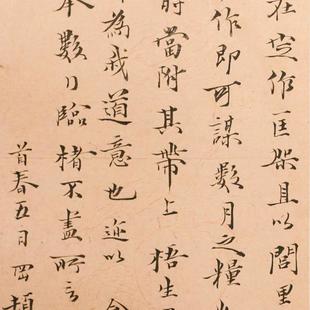 在芝作匡架且以閤里
作即可謀數月之糧
時當附其帶上梧生
為我道意也逰以
本數〻臨楮不盡所言
首春五日罡頓